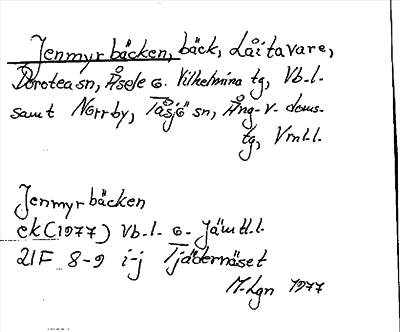 Jenmyrbäcken, bäck, Låitavare,
Dorotea sn, Åsele o. Vilhelmina tg, Vb. l.
samt Norrby, Tåsjö sn, Ång. v. doms.
tg, Vnl l.
Jenmyrbäcken
ek (1977) Vb. l. o. Jämtl. l.
21F 8-9 i-j Tjädernäset
M. Lgn 1977